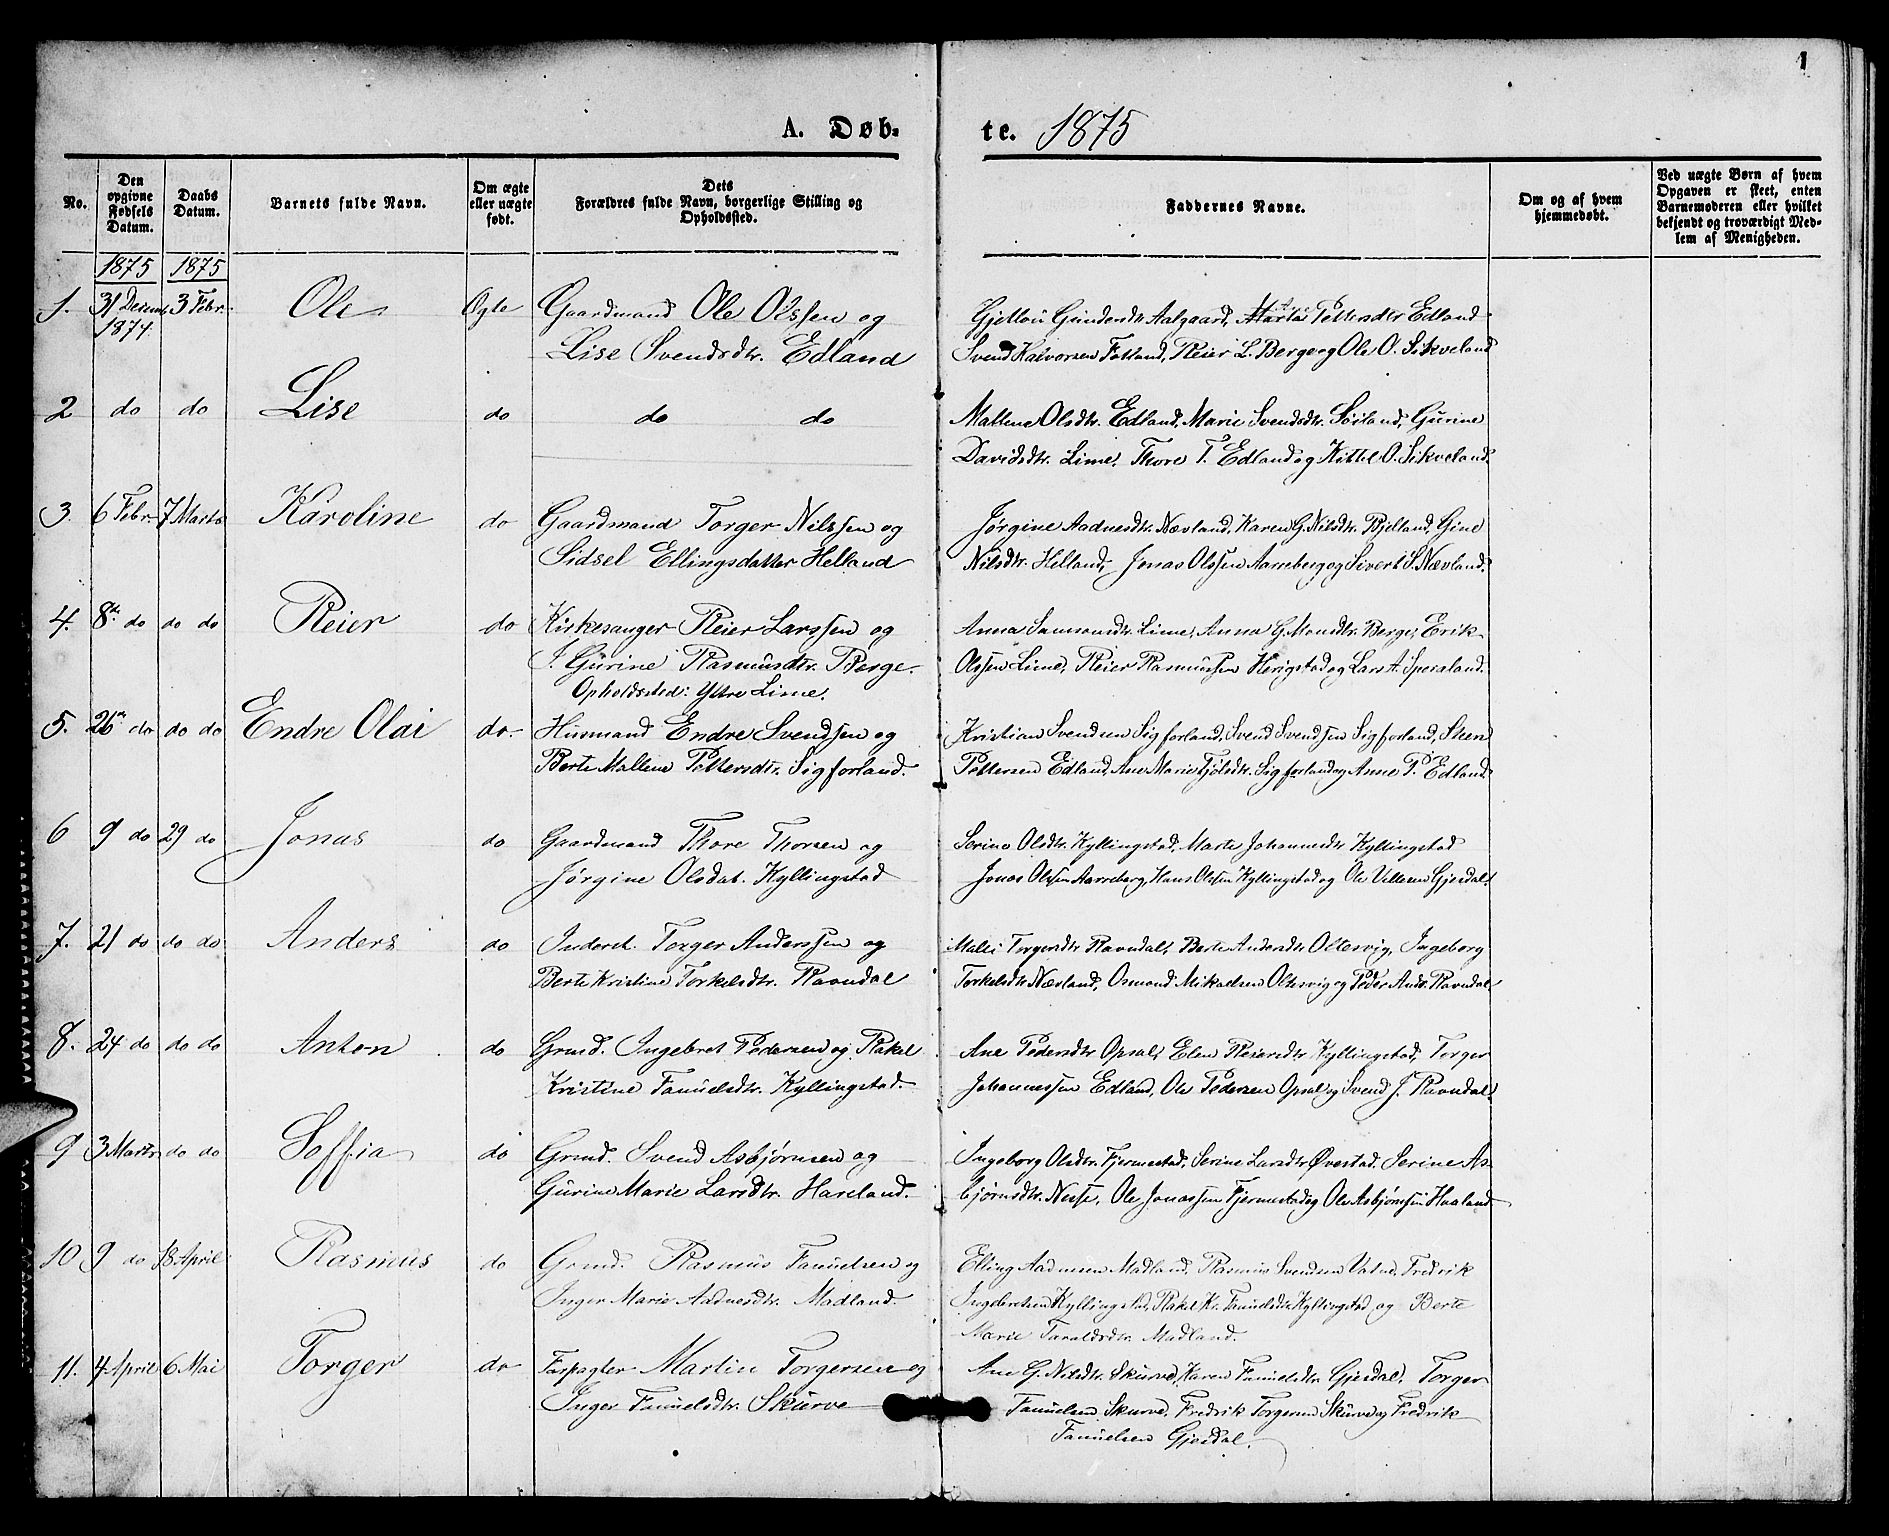 1
A. Døb-
te. 1875
No.
Den opgivne Fødsels Datum.
Daabs Datum.
Barnets fulde Navn.
Om ægte eller uægte født.
Dets Forældres fulde Navn, borgerlige Stilling og Opholdssted.
Faddernes Navne.
Om og af hvem hjemmedøbt.
Ved uægte Børn af hvem Opgaven er skeet, enten Barnemoderen eller hvilket bekjendt og troværdigt Medlem af Menigheden.
1875 1875
1. 31 Decemb. 1874. 3 Febr. Ole Ægte Gaardmand Ole Olsen og
Lise Svendsdtr. Edland
Aalgaard, Marta Pettersdtr Edland
Svend Halvorsen Fotland, Reier L. Berge og Ole O. Sikveland
2 do do Lise do do do
Mallene Olsdtr. Edland, Marie Svendsdtr. Gurine
Davidsdtr. Lime, Thore T. Edland og Kittel O. Sikveland.
3. 6 Febr. 7 Marts Karoline do Gaardmand Torger Nilssen og
Sidsel Ellingsdatter Helland
Jørgine Aadnesdtr. Nævland, Karen G. Nilsdtr. Bjelland, Gine
Nilsdtr. Helland, Jonas Olssen Aarreberg og Sivert S. Nævland.
4. 8de do do do Reier do Kirkesanger Reier Larssen og
J. Gurine Rasmusdtr. Berge.
Opholdssted: Ytre Lime.
Anna Samsonsdtr. Lime, Anna G. Monsdtr. Berge, Erik
Olssen Lime, Reier Rasmussen Herigstad og Lars A.
5. 26de do do do Endre Olai do. Husmand Endre Svendsen og
Berte Mallene Pettersdtr. Sigforland.
Kristian Svendsen Sigforland, Svend Svendsen Sigforland,
Pettersen Edland, Ane Marie Sigforland og Anne P. Edland.
6 9 do 29 do Jonas do Gaardmand Thore Thorsen og
Jørgine Olsdat. Kyllingstad
Serine Olsdtr. Kyllingstad, Marte Johannesdtr Kyllingstad
Jonas Olsen Aarreberg, Hans Olsen Kyllingstad og Ole Villumsen Gjesdal.
7. 21 do do do Anders do Inderst. Torger Anderssen og
Berte Kristine Torkelsdtr. Ravndal
Malli Torgersdtr Ravndal, Berte Andersdtr Oltesvig, Ingeborg
Torkelsdtr Nævland, Osmond Mikaelsen Oltesvig og Peder Ands. Ravndal.
8. 24 do do do Anton do Grmd. Ingebret Pedersen og Rakel
Kristine Fanuelsdtr. Kyllingstad.
Ane Pedersdtr Opsal, Elen Reiersdtr Kyllingstad, Torger
Johannessen Edland, Ole Pedersen Opsal og Svend J. Ravndal.
9 3 Marts do do Soffia do Grmd. Svend Asbjørnsen og
Gurine Marie Larsdtr. Haaland.
Ingeborg Olsdtr. Fjermestad, Serine Larsdtr Øvestad, Serine As-
bjørnsdtr. Nese, Ole Jonassen Fjermestad og Ole Asbjørnsen Haaland.
10 9 do 18 April Rasmus do Grmd. Rasmus Fanuelsen og
Inger Marie Aadnesdtr. Madland.
Elling Aadnesen Madland, Rasmus Svendsen Fredrik
Ingebretsen Kyllingstad, Rakel Kr. Fanuelsdtr Kyllingstad og Berte
Marie Taraldsdtr. Madland.
11. 4 April 6 Mai Torger do Forpagter Martin Torgersen og
Inger Fanuelsdtr. Skurve
Ane G. Nilsdtr. Skurve, Karen Fanuelsdtr. Gjesdal, Torger
Fanuelsen Skurve, Fredrik Torgersen Skurve og Fredrik
Fanuelsen Gjesdal.